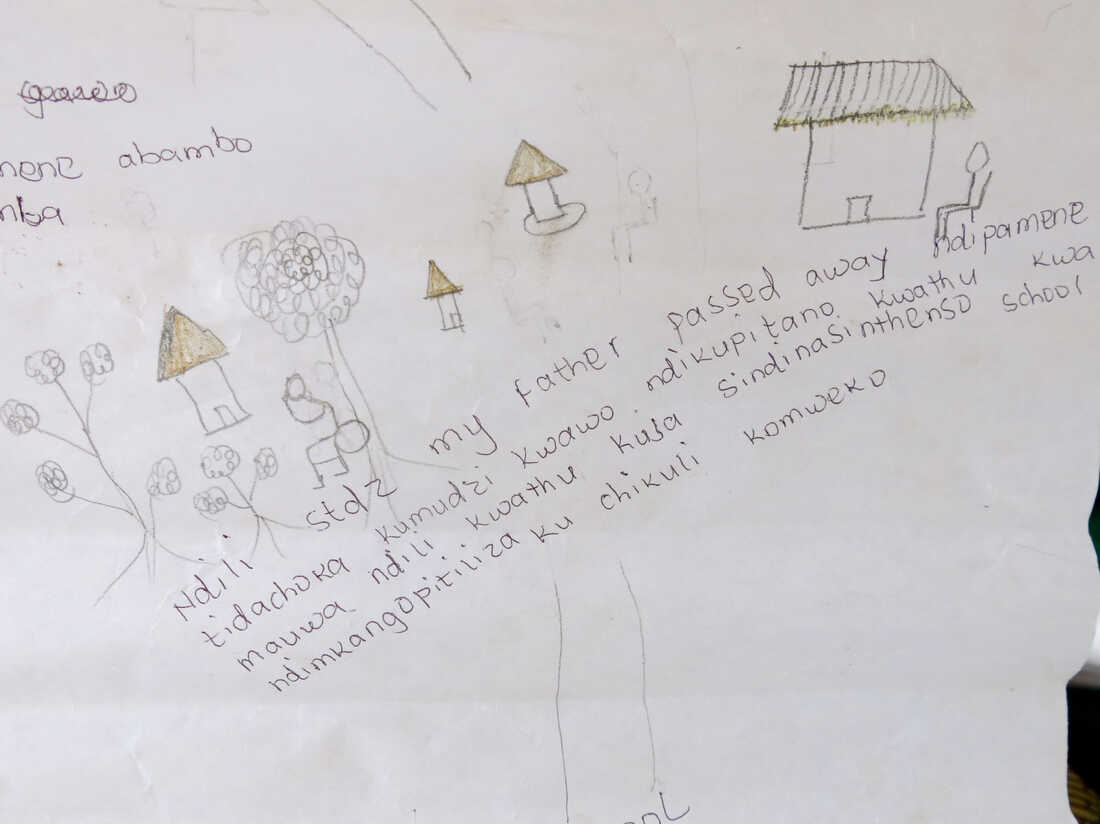 abambo
Ndili std2 my father passed away ndipamene
tidachoka kumudzi kwawo ndikupitano kwathu kwa
mauwa ndili kwathu kuja sindinasinthenso school
ndimkangopitiliza ku chikuli komweko